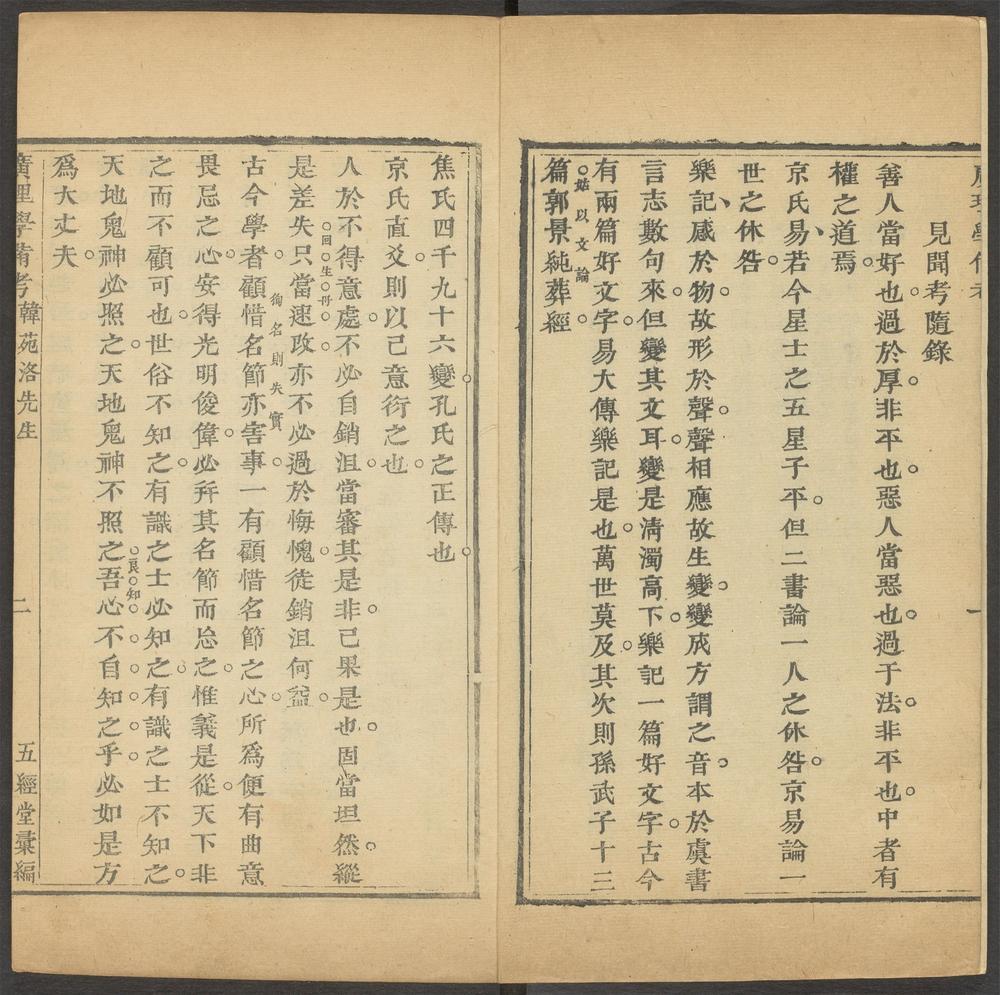 見聞考隨錄
善人當好也過於厚非平也惡人當惡也過于法非平也中者有
權之道焉
京氏易若今星士之五星子平但二書論一人之休咎京易論一
世之休咎
樂記感於物故形於聲聲相應故生變變成方謂之音本於虞書
言志數句來但變其文耳變是淸濁高下樂記一篇好文字古今
有兩篇好文字易大傳樂記是也萬世莫及其次則孫武子十三
姑以文論
篇郭景純葬經
焦氏四千九十六變孔氏之正傳也
京氏直爻則以己意衍之也
人於不得意處不必自銷沮當審其是非己果是也固當坦然縱
回生丹
是差失只當速改亦不必過於悔愧徒銷沮何益
徇名則失實
古今學者顧惜名節亦害事一有顧惜名節之心所爲便有曲意
畏忌之心安得光明俊偉必弃其名節而忘之惟義是從天下非
之而不顧可也世俗不知之有識之士必知之有識之士不知之
天地鬼神必照之天地鬼神不照之吾心不自知之乎必如是方
良知
爲大丈夫
廣理學備考韓苑洛先生 二 五經堂彙編